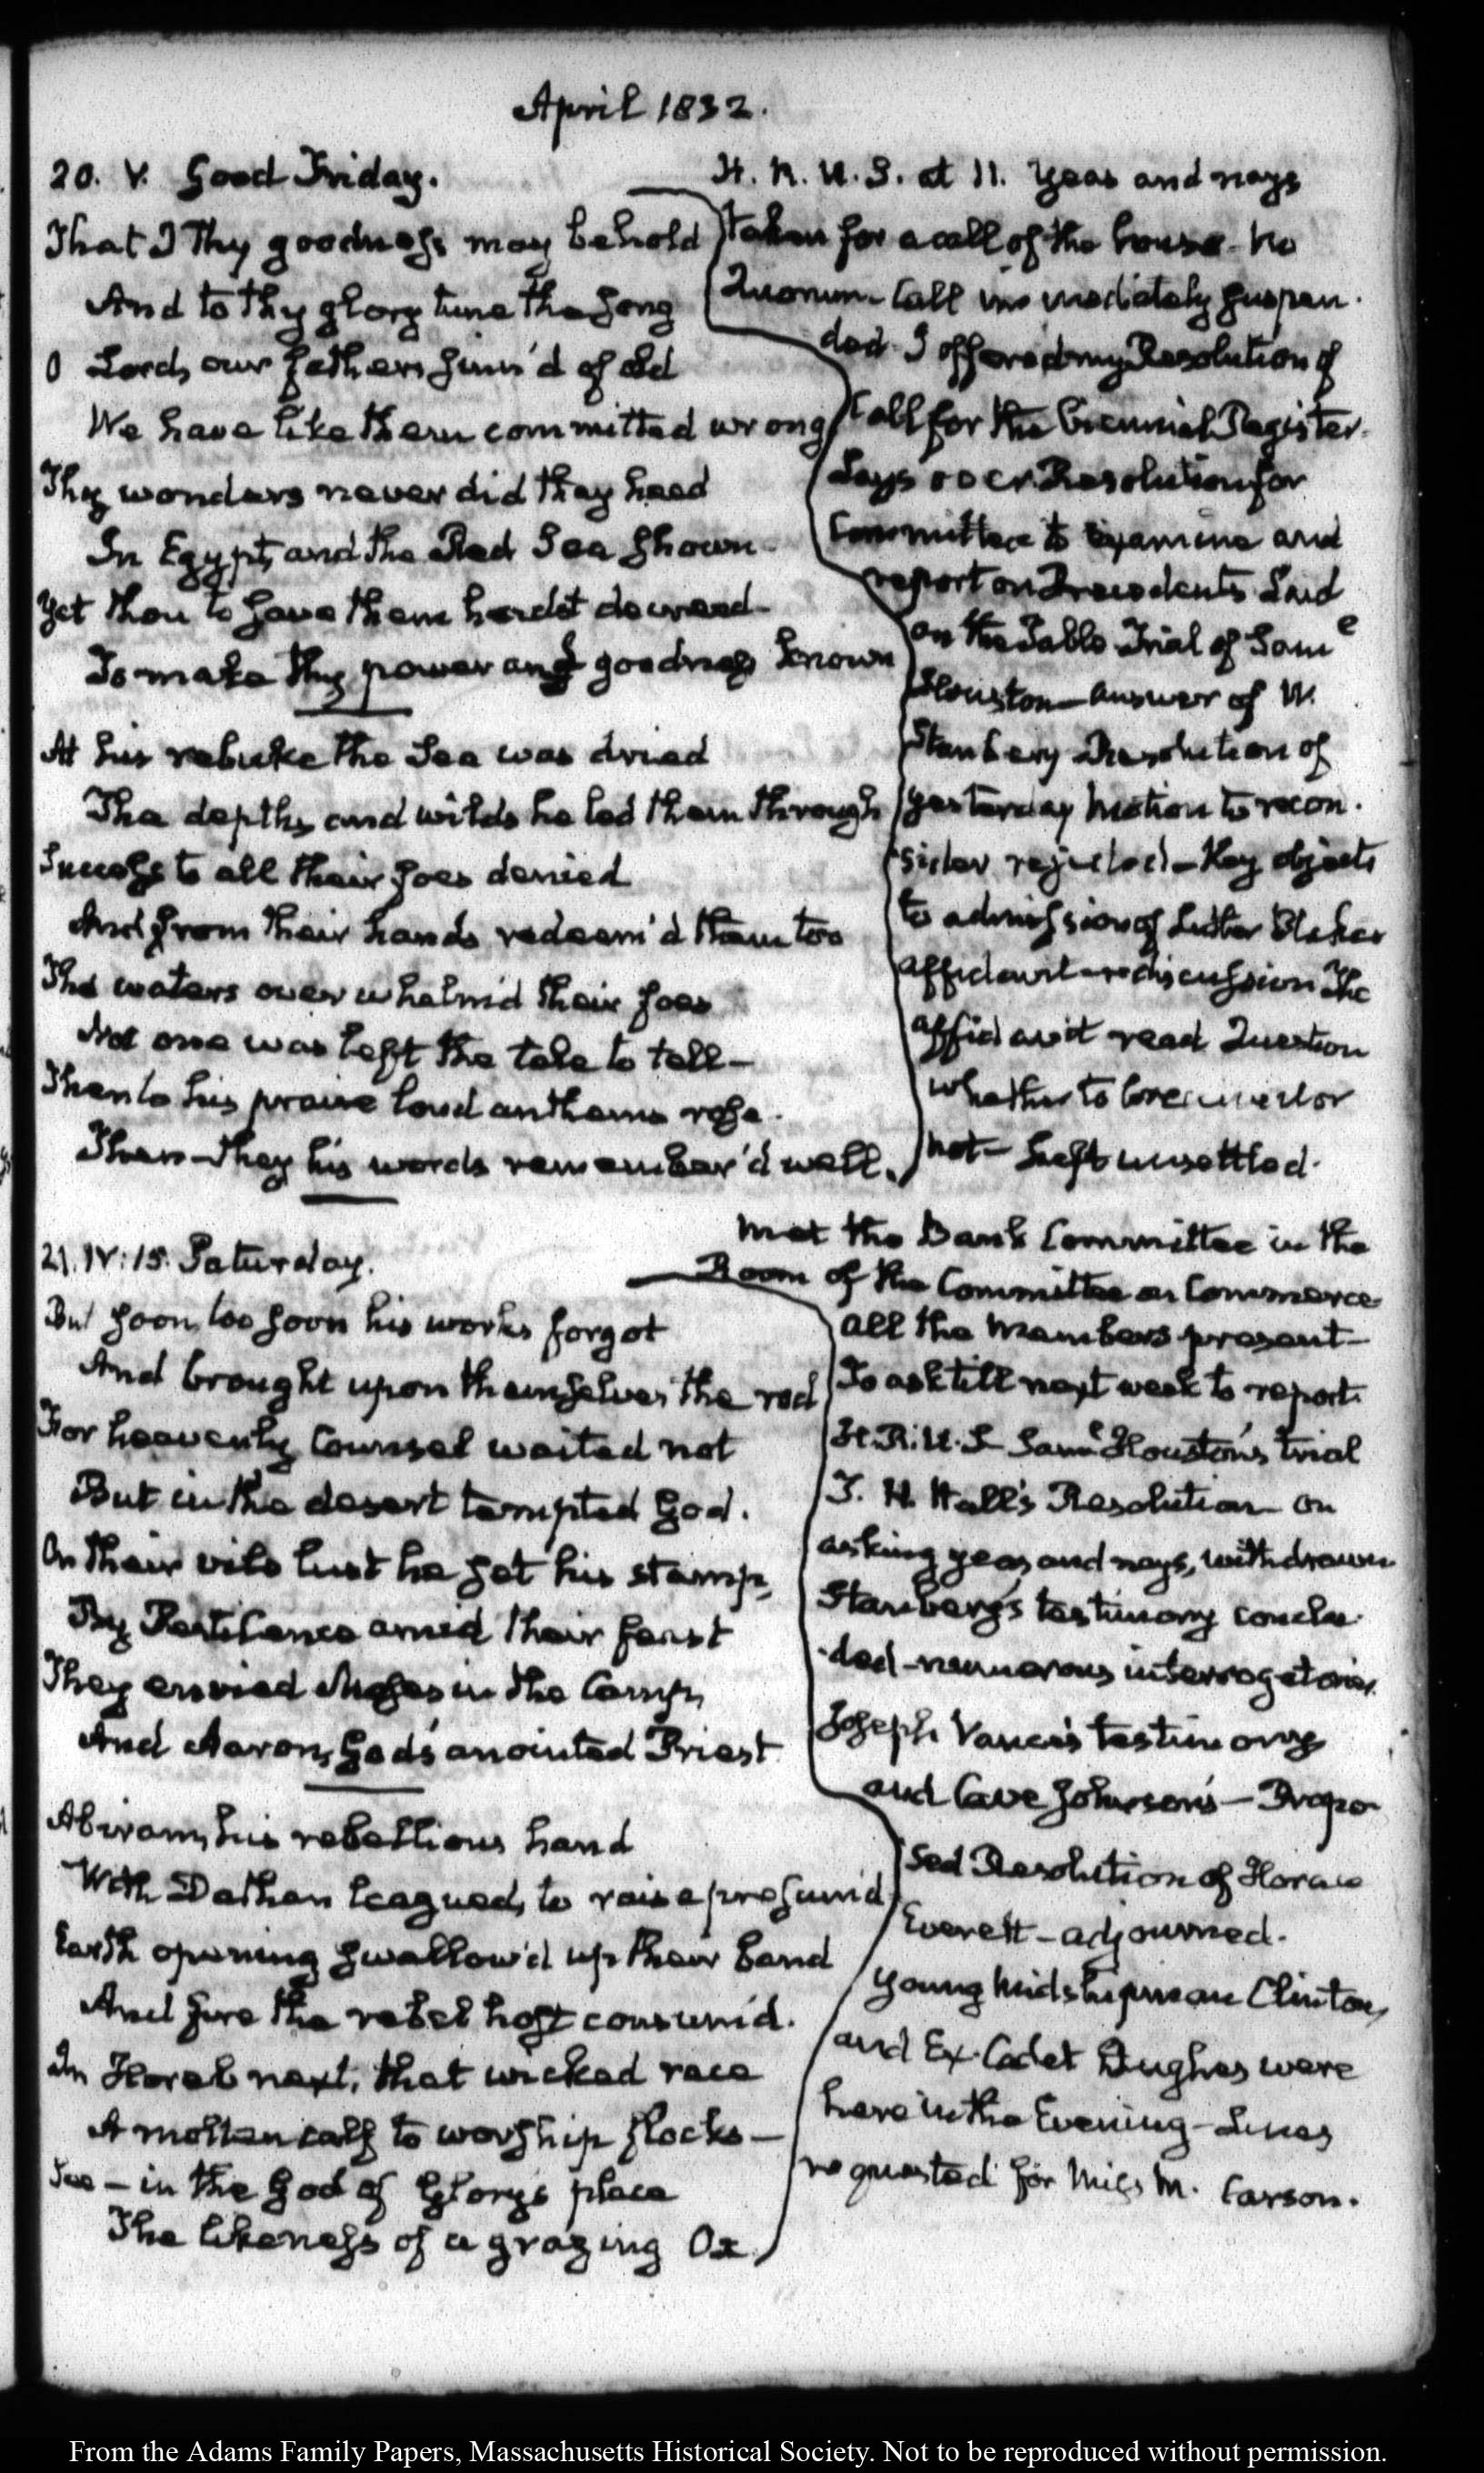 April 1832.
20. V. Good Friday.
That I Thy goodness may behold
And to thy glory tune the song
O Lord, our fathers sinn'd of old
We have like them committed wrong
Thy wonders never did they heed
In Egypt, and the Red Sea shown
Yet Thou to save them hadst decreed
To make thy power and goodness known
At his rebuke the Sea was dried
The depths, and wilds he led them through
Success to all their foes denied
And from their hands redeem'd them too
The waters overwhelm'd their foes
Not one was left the tale to tell—
Then to his praise loud anthems rose.
Then—they his words remember'd well.
H. R. U. S. at 11. Yeas and nays
taken for a call of the house. No
Quorum. Call immediately suspen-
ded. I offered my Resolution of
Call for the biennial Register.
Lays over. Resolution for
Committee to examine and
report on Precedents Laid
on the Table Trial of Saml
Houston—answer of W.
Stanbery Resolution of
yesterday Motion to recon-
sider rejected—Key objects
to admission of Luther Blakes
affidavit—discussion The
affidavit read Question
whether to be received or
not—Left unsettled.
21. IV:15. Saturday.
But soon, too soon his works forgot
And brought upon themselves the rod
For heavenly Counsel waited not
But in the desert tempted God.
On their vile lust he set his stamp,
By Pestilence amid their feast
They envied Moses in the Camp,
And Aaron, God's anointed Priest
Abiram, his rebellious hand
With Dathan leagued, to raise presum'd
Earth opening swallow'd up their band
And fire the rebel host consum'd.
In Horeb next, that wicked race
A molten calf to worship flocks—
See—in the God of Glory's place
The likeness of a grazing Ox.
Met the Bank Committee in the
Room of the Committee on Commerce
all the Members present—
To ask till next week to report.
H. R. U. S Saml Houston's trial
T. H. Hall's Resolution—on
asking yeas and nays, withdrawn
Stanbery's testimony conclu-
ded—numerous interrogatories.
Joseph Vance's testimony
and Cave Johnson's—Propo
sed Resolution of Horace
Everett—adjourned.
Young Midshipman Clinton,
and Ex-Cadet Hughes were
here in the Evening—Lines
requested for Miss M. Carson.
From the Adams Family Papers, Massachusetts Historical Society. Not to be reproduced without permission.